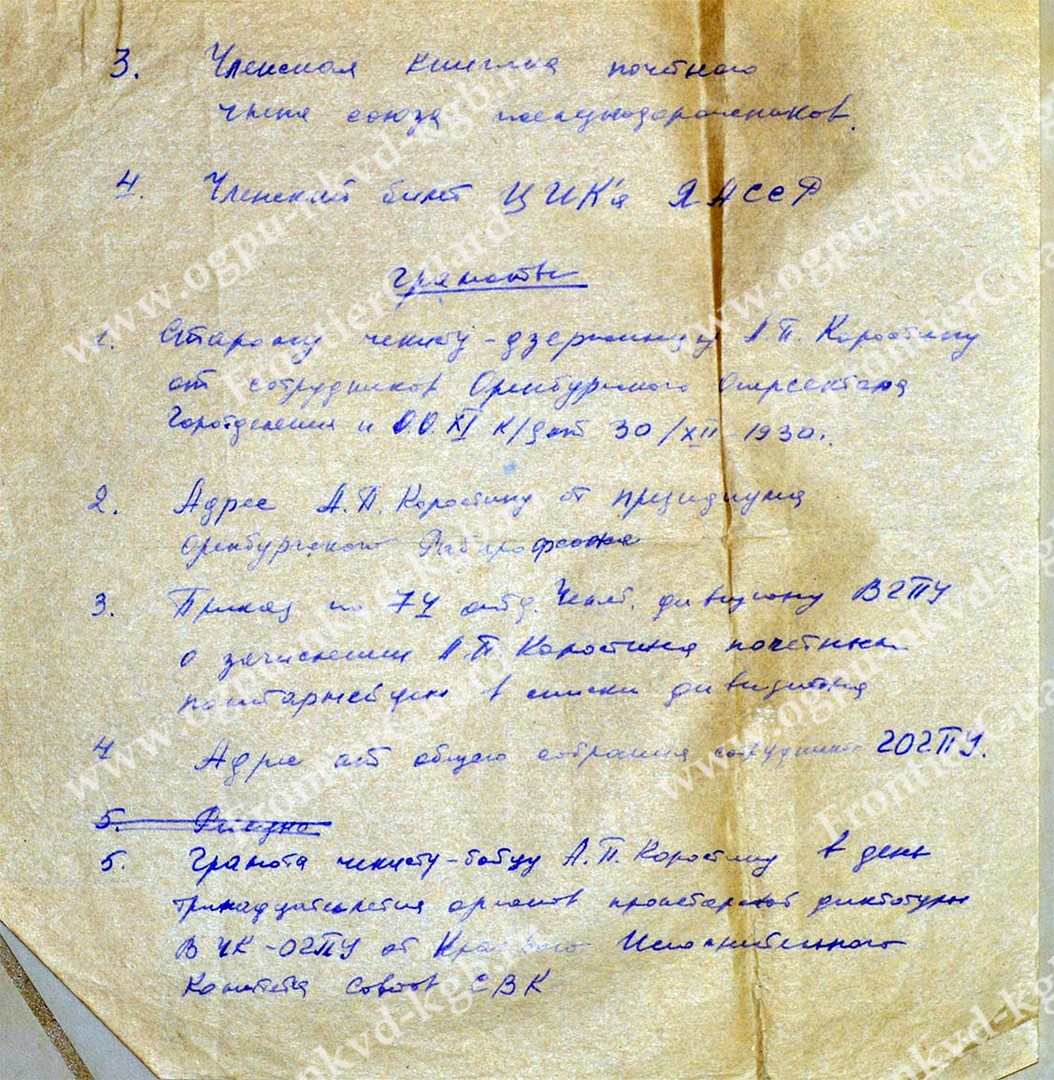 3. Членская книжка почетного
члена союза железнодорожников.
4. Членский билет ЦИК'а ЯАССР
Грамоты
1. Старому чекисту-дзержинцу А.П. Коростину
от сотрудников Оренбургского Оперсектора
Горотделения и О.О. XI К/д от 30/XII-1930г.
2. Адрес А.П. Коростину от президиума
Оренбургского
3. Приказ по 74 отд. дивизиону ВГПУ
о зачислении А.П. Коростина почетным
политармейцем в списки дивизиона
4 Адрес от общего собрания сотрудников ГОГПУ.
5.
5. Грамота чекисту-бойцу А.П. Коростину в день
тринадцатилетия органов пролетарской диктатуры
ВЧК-ОГПУ от Краевого Исполнительного
Комитета Советов СВК
www.ogpu-nkvd-kgb.ru
FrontierGuard